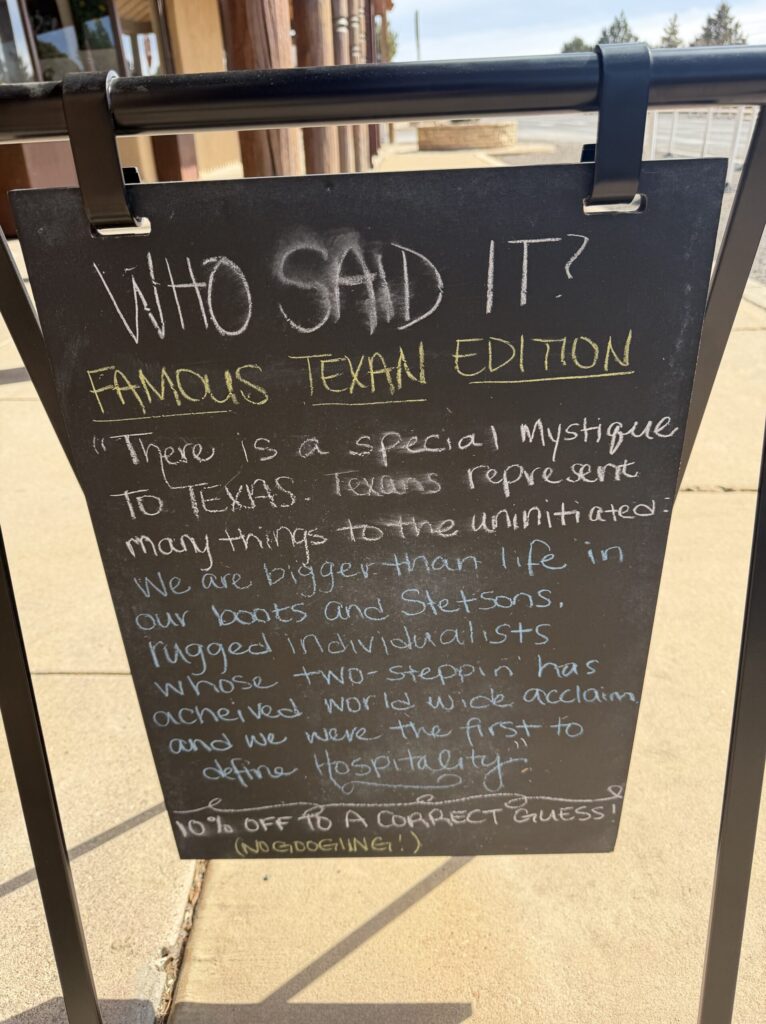 WHO SAID IT?
FAMOUS TEXAN EDITION
"There is a special Mystique
TO TEXAS. Texans represent
many things to the uninitiated:
We are bigger than life in
our boots and Stetsons,
rugged individualists
whose two-steppin' has
acheived world wide acclaim
and we were the first to
define Hospitality."
10% OFF TO A CORRECT GUESS!
(NO GOOGLING!)